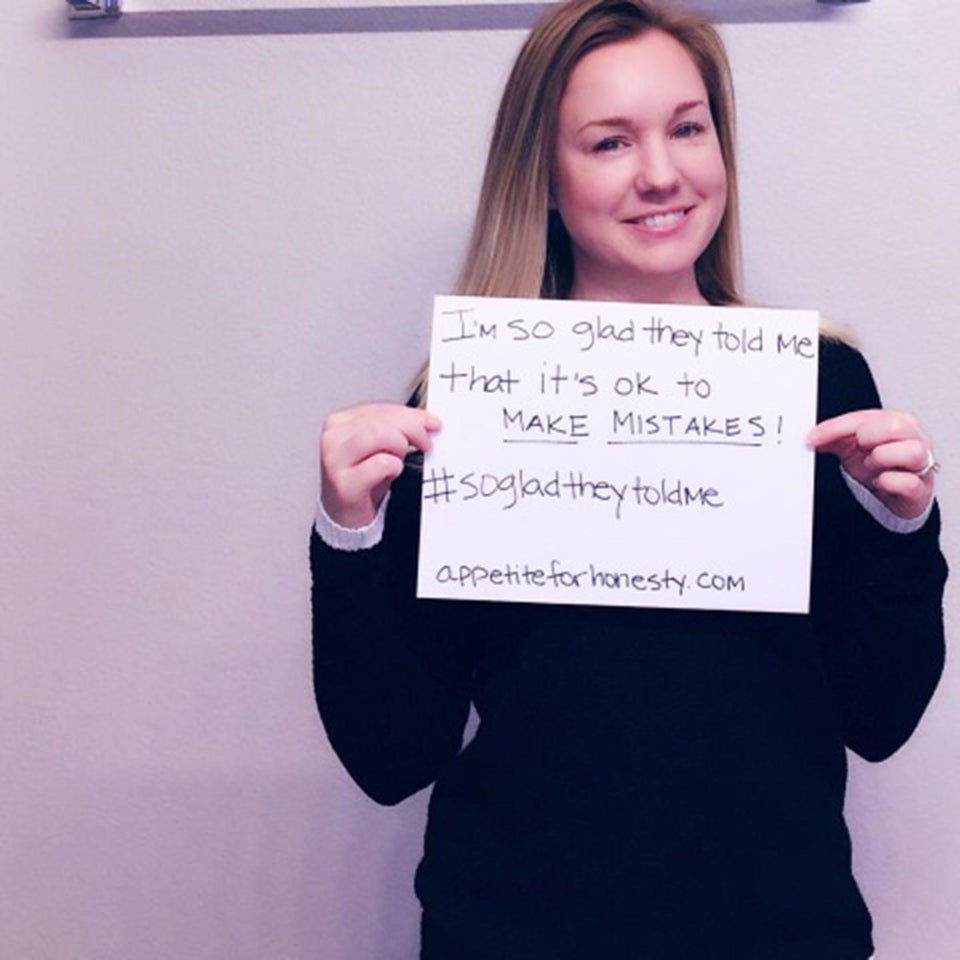 I'm so glad they told me
that it's ok to
MAKE MISTAKES!
#sogladtheytoldme
appetiteforhonesty.com